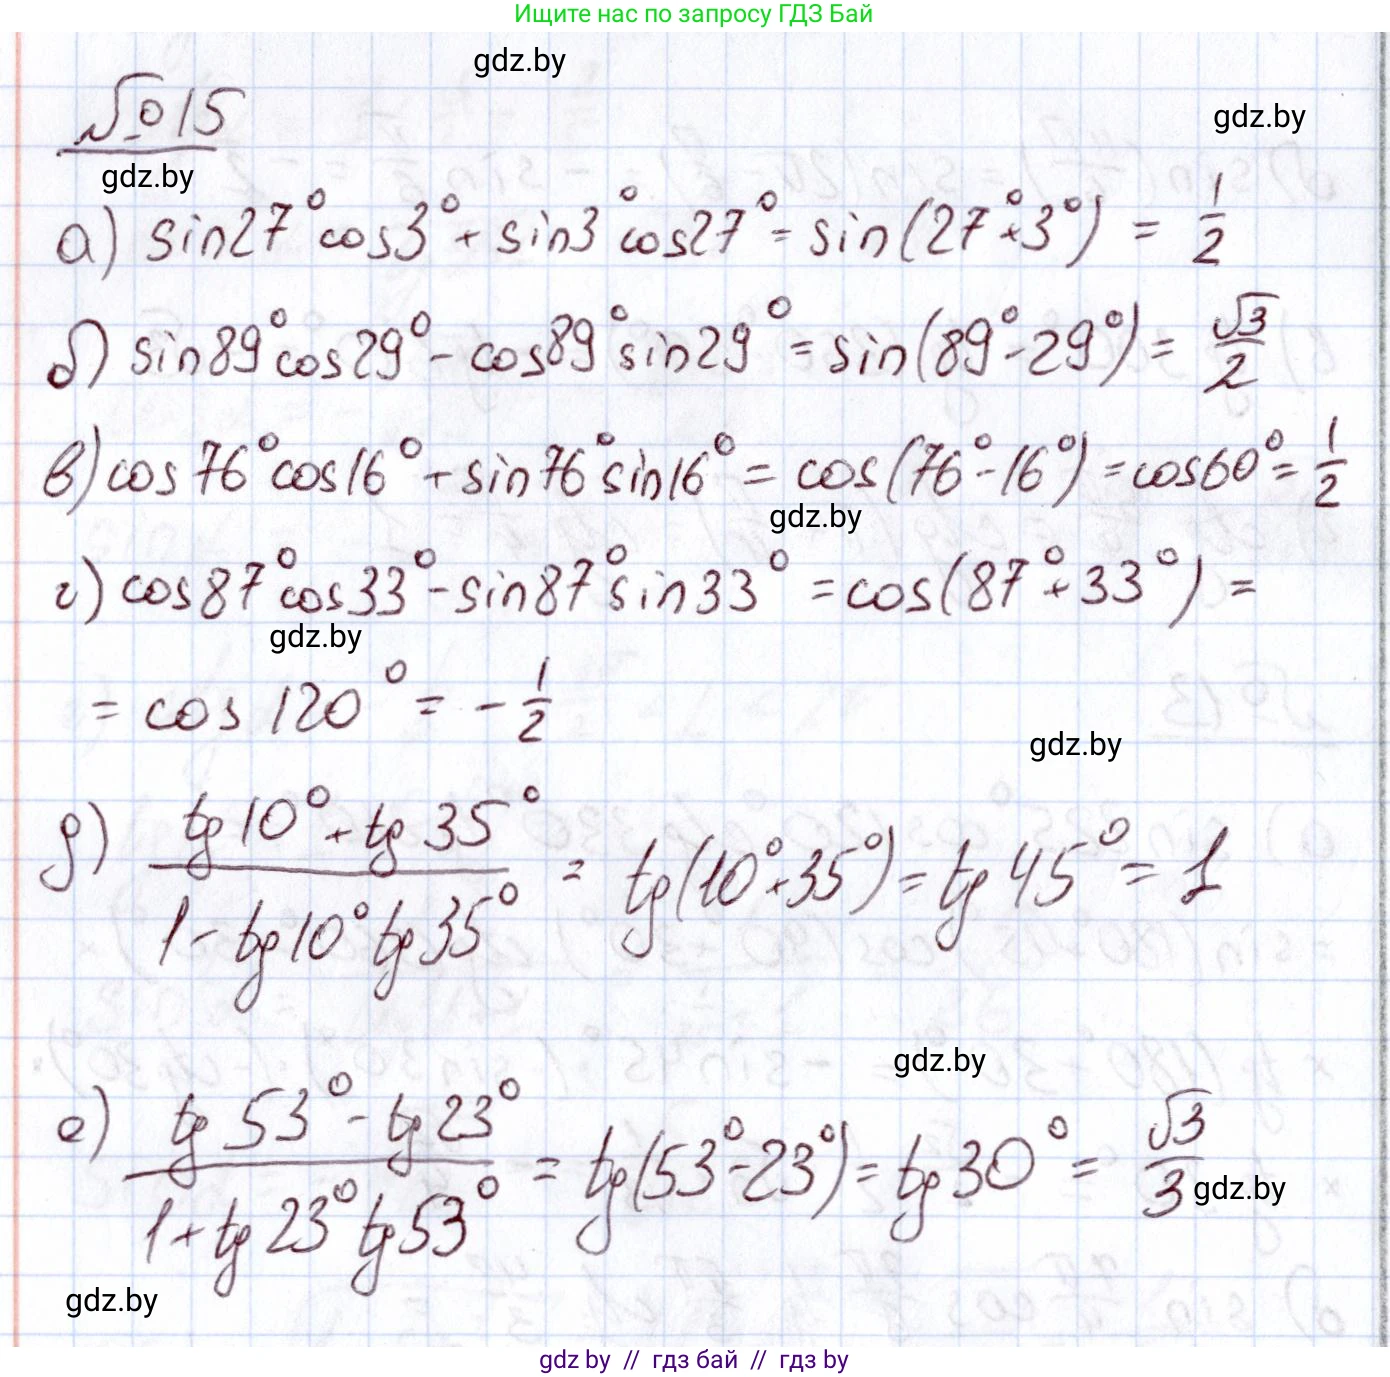 Ищите нас по запросу ГДЗ Бай
gdz.by
№15
gdz.by
gdz.by
а) sin27° cos3° + sin3° cos27° = sin(27°+3°) = 1/2
б) sin89° cos29° - cos89° sin29° = sin(89°-29°) = √3/2
в) cos76° cos16° + sin76° sin16° = cos(76°-16°) = cos60° = 1/2
gdz.by
г) cos87° cos33° - sin87° sin33° = cos(87°+33°) =
gdz.by
= cos 120° = - 1/2
gdz.by
д) (tg10° + tg35°)/(1 - tg10° tg35°) = tg(10°+35°) = tg45° = 1
gdz.by
е) (tg53° - tg23°)/(1 + tg23° tg53°) = tg(53°-23°) = tg30° = √3/3
gdz.by
gdz.by
gdz by // гдз бай // гдз by